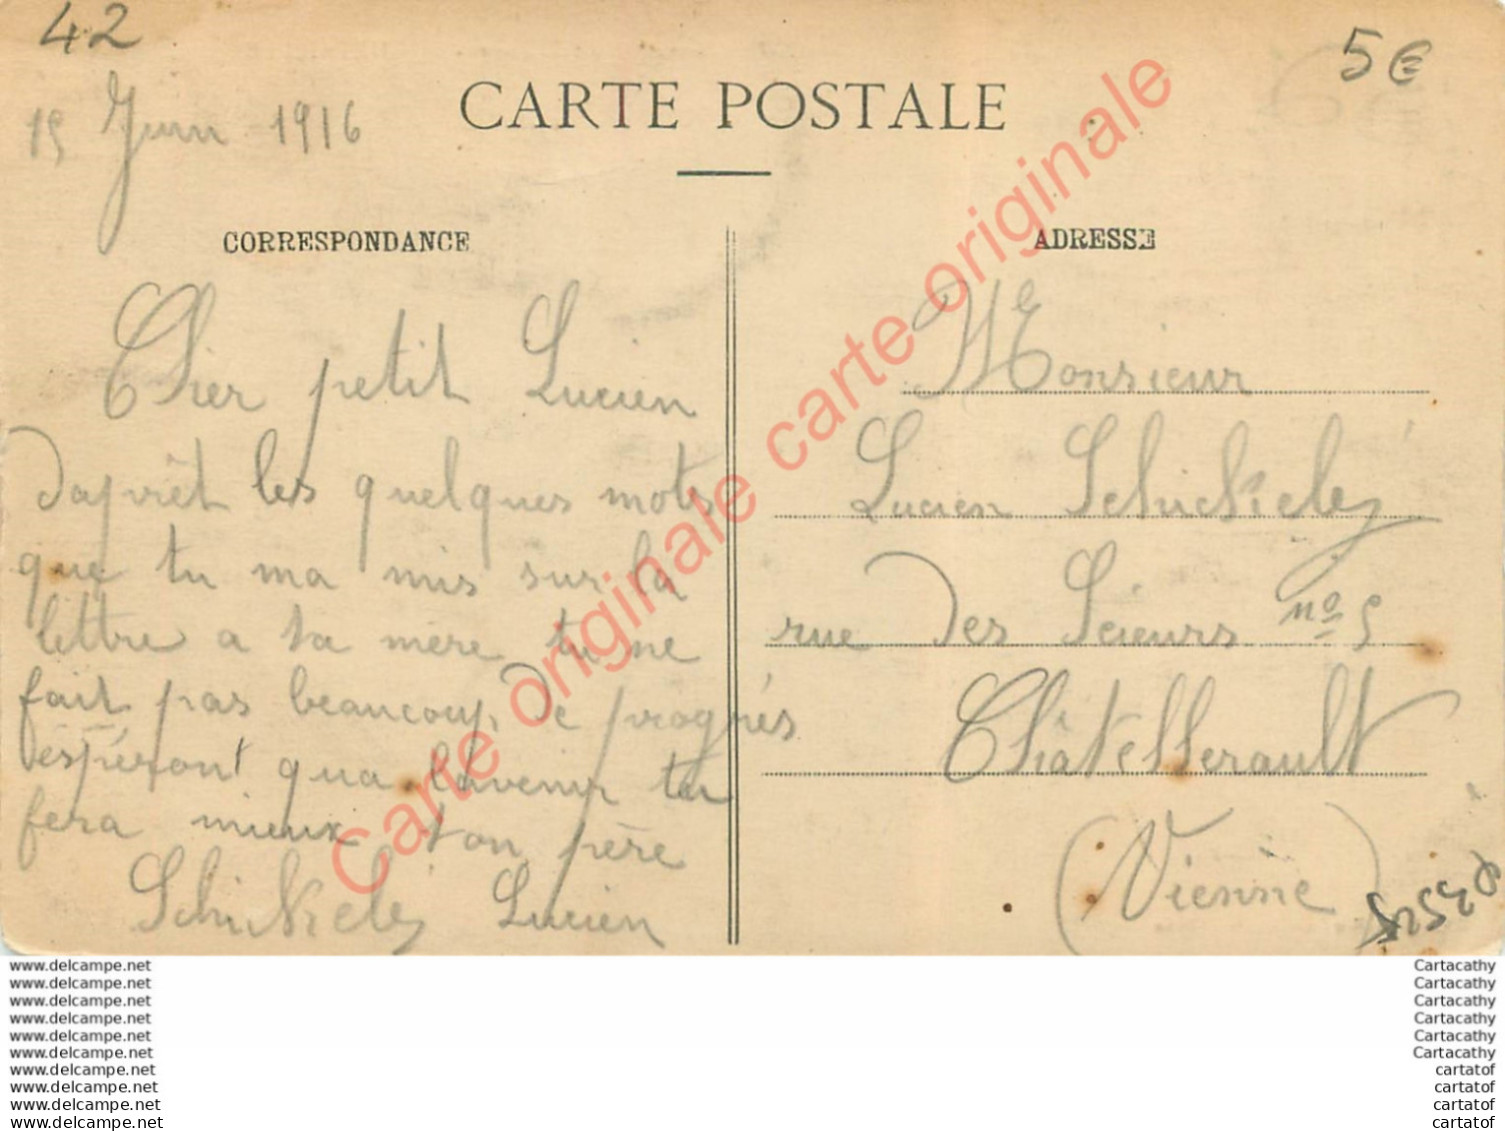 42
5€
15 Juin 1916
CARTE POSTALE
CORRESPONDANCE
ADRESSE
Cher petit Lucien
daprêt les quelques mots
que tu ma mis sur la
lettre a ta mère tu ne
fait pas beaucoup de progrès
espéront qua lavenir tu
fera mieux ton père
Schickelé Lucien
Monsieur
Lucien Schickelé
rue des Scieurs no 5
Châtellerault
(Vienne)
carte originale carte originale carte originale
www.delcampe.net
www.delcampe.net
www.delcampe.net
www.delcampe.net
www.delcampe.net
www.delcampe.net
www.delcampe.net
www.delcampe.net
www.delcampe.net
www.delcampe.net
Cartacathy
Cartacathy
Cartacathy
Cartacathy
Cartacathy
Cartacathy
cartatof
cartatof
cartatof
cartatof